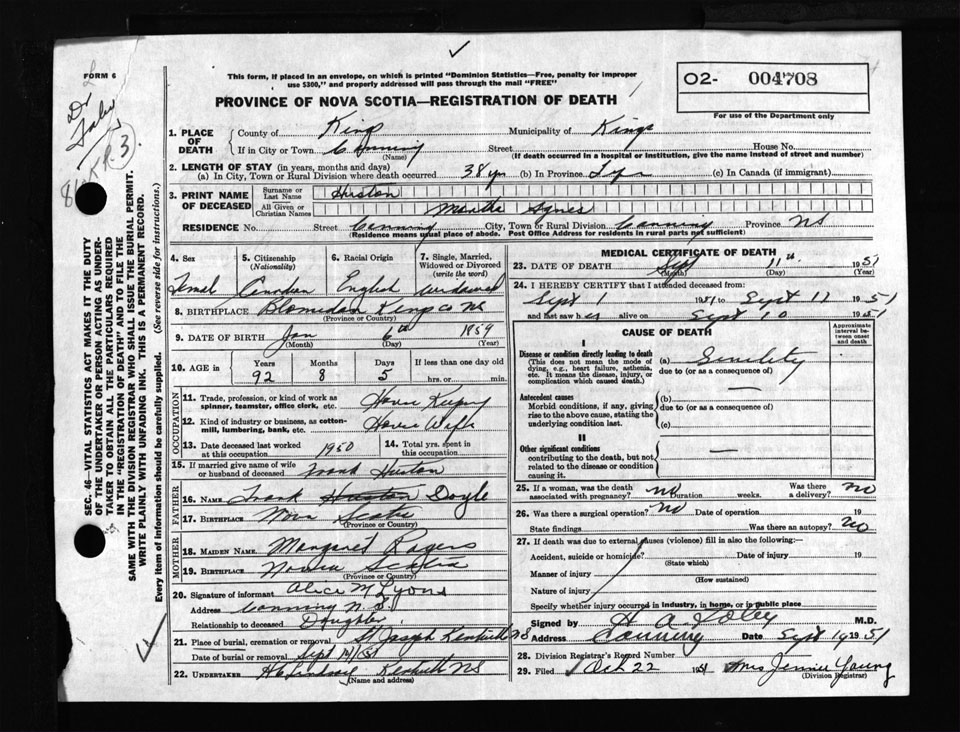 FORM 6
This form, if placed in an envelope, on which is printed "Dominion Statistics—Free, penalty for improper
use $300," and properly addressed will pass through the mail "FREE"
O2- 004708
For use of the Department only
PROVINCE OF NOVA SCOTIA—REGISTRATION OF DEATH
Dr
Foley
1. PLACE OF DEATH
County of Kings Municipality of Kings
If in City or Town Canning Street House No.
(Name) (If death occurred in a hospital or institution, give the name instead of street and number)
2. LENGTH OF STAY (in years, months and days)
(a) In City, Town or Rural Division where death occurred 38 yrs (b) In Province Life (c) In Canada (if immigrant)
3. PRINT NAME OF DECEASED
Surname or Last Name Huston
All Given or Christian Names Martha Agnes
RESIDENCE No. Street Canning City, Town or Rural Division Canning Province NS
(Residence means usual place of abode. Post Office Address for residents in rural parts not sufficient)
4. Sex
Female
5. Citizenship
(Nationality)
Canadian
6. Racial Origin
English
7. Single, Married,
Widowed or Divorced
(write the word)
Widowed
8. BIRTHPLACE Blomidon Kings Co NS
(Province or Country)
9. DATE OF BIRTH Jan 6th 1859
(Month) (Day) (Year)
10. AGE in
Years 92
Months 8
Days 5
If less than one day old
hrs. or min.
OCCUPATION
11. Trade, profession, or kind of work as
spinner, teamster, office clerk, etc. House Keeping
12. Kind of industry or business, as cotton-
mill, lumbering, bank, etc. House Wife
13. Date deceased last worked
at this occupation 1950
14. Total yrs. spent in
this occupation
15. If married give name of wife
or husband of deceased Frank Huston
FATHER
16. NAME Frank Huston Doyle
17. BIRTHPLACE Nova Scotia
(Province or Country)
MOTHER
18. MAIDEN NAME Margaret Rogers
19. BIRTHPLACE Nova Scotia
(Province or Country)
20. Signature of informant Alice M Lyons
Address Canning N.S.
Relationship to deceased Daughter
21. Place of burial, cremation or removal St Joseph Kentville NS
Date of burial or removal Sept 14/51
22. UNDERTAKER H Lindsay Kentville NS
(Name and address)
MEDICAL CERTIFICATE OF DEATH
23. DATE OF DEATH Sept 11th 1951
(Month) (Day) (Year)
24. I HEREBY CERTIFY that I attended deceased from:
Sept 1 1951 to Sept 11 1951
and last saw her alive on Sept 10 1951
CAUSE OF DEATH
Approximate
interval be-
tween onset
and death
I
Disease or condition directly leading to death
(This does not mean the mode of
dying, e.g., heart failure, asthenia,
etc. It means the disease, injury, or
complication which caused death.)
(a) Senility
due to (or as a consequence of)
Antecedent causes
Morbid conditions, if any, giving
rise to the above cause, stating the
underlying condition last.
(b) —
due to (or as a consequence of)
(c)
II
Other significant conditions
contributing to the death, but not
related to the disease or condition
causing it. —
25. If a woman, was the death
associated with pregnancy? no Duration weeks. Was there
a delivery? no
26. Was there a surgical operation? no Date of operation 19
State findings Was there an autopsy? no
27. If death was due to external causes (violence) fill in also the following:—
Accident, suicide or homicide? Date of injury 19
(State which)
Manner of injury
(How sustained)
Nature of injury
Specify whether injury occurred in industry, in home, or in public place
Signed by H A Foley M.D.
Address Canning Date Sept 1951
28. Division Registrar's Record Number
29. Filed Oct 22 1951 Mrs Jennie Young
(Division Registrar)
SEC. 46—VITAL STATISTICS ACT MAKES IT THE DUTY
OF THE UNDERTAKER OR PERSON ACTING AS UNDER-
TAKER TO OBTAIN ALL THE PARTICULARS REQUIRED
IN THE "REGISTRATION OF DEATH" AND TO FILE THE
SAME WITH THE DIVISION REGISTRAR WHO SHALL ISSUE THE BURIAL PERMIT.
WRITE PLAINLY WITH UNFADING INK. THIS IS A PERMANENT RECORD.
Every item of information should be carefully supplied. (See reverse side for instructions.)